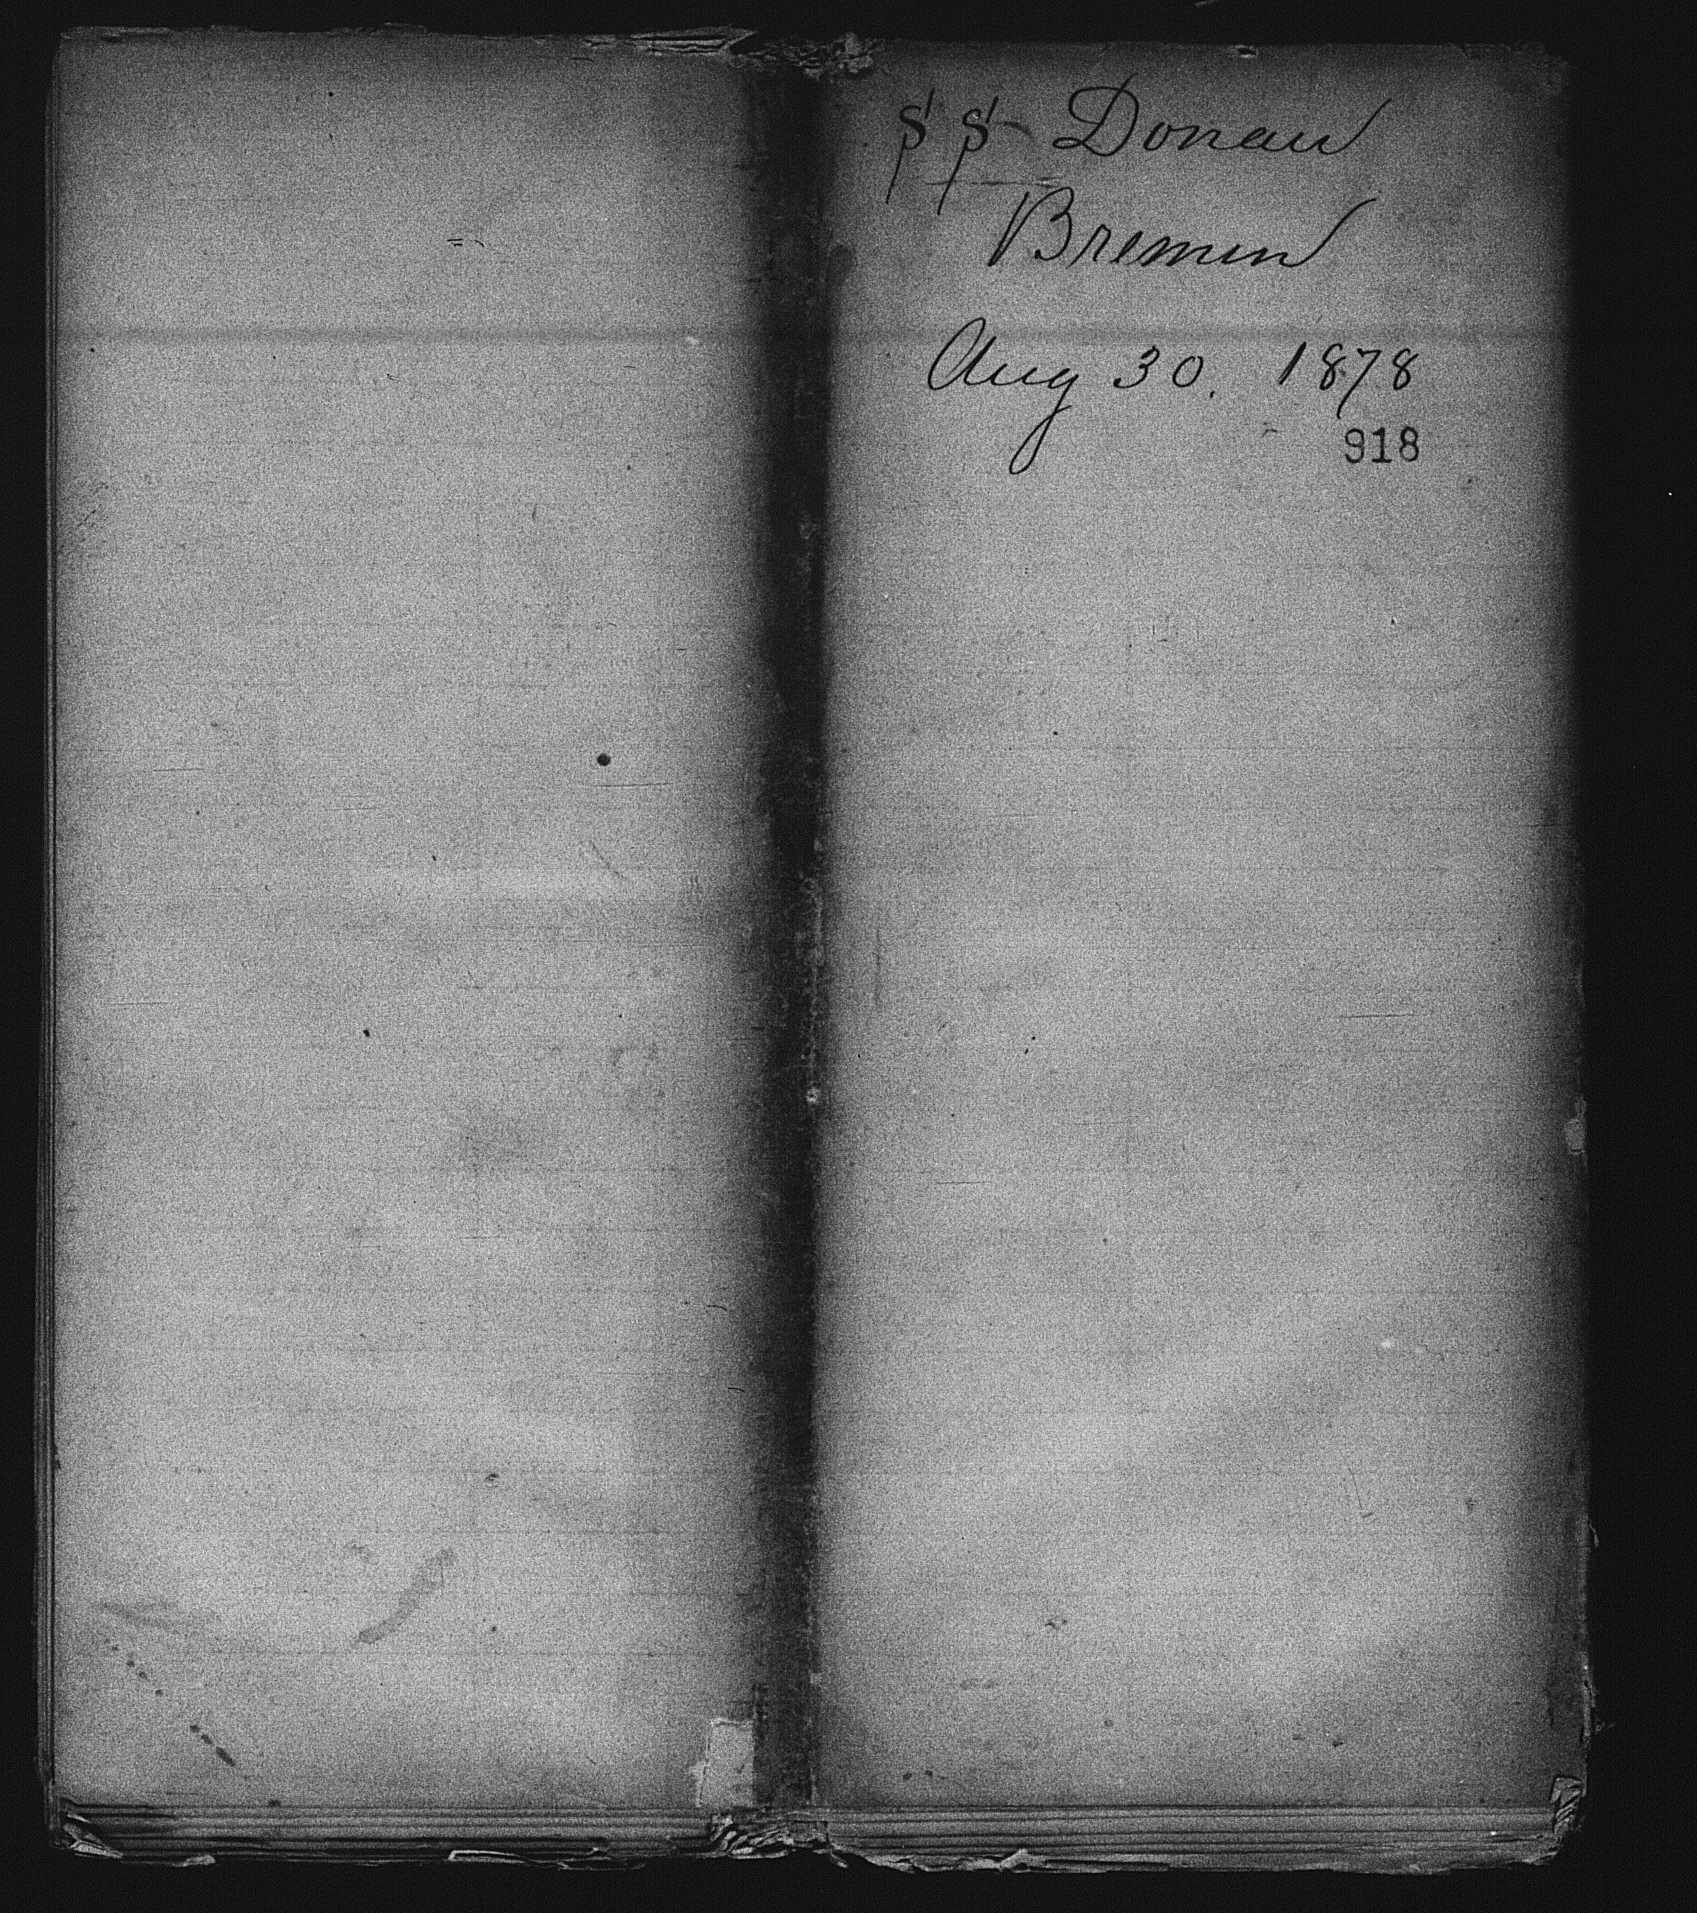 SS Donau
Bremen
Aug 30. 1878
918